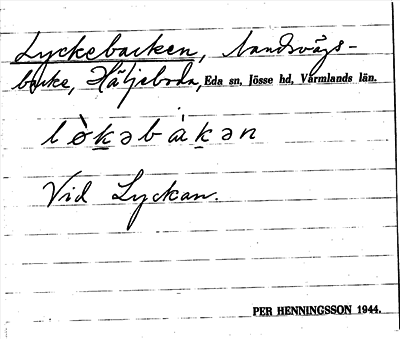 Lyckebacken, landsvägs-
backe, Häljeboda, Eda sn, Jösse hd, Värmlands län.
lø̀kəbákən
Vid Lyckan.
PER HENNINGSSON 1944.